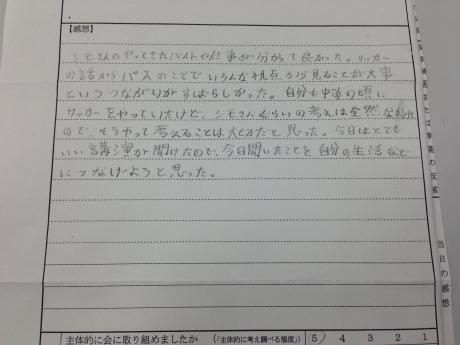 【感想】
シモさんのやってきたバイトや仕事が分かって良かった。サッカー
の話からパスのことでいろんな視点から見ることが大事
というつながりがすばらしかった。自分も中道の頃に
サッカーをやっていたけど、シモさんくらいの考えは全然
ので、そうやって考えることは大切だと思った。今日はとても
いい講演が聞けたので、今日聞いたことを自分の生活などに
につなげようと思った。
主体的に会に取り組めましたか (「主体的に考え調べる態度」) 5 4 3 2 1
の反省
当日の感想